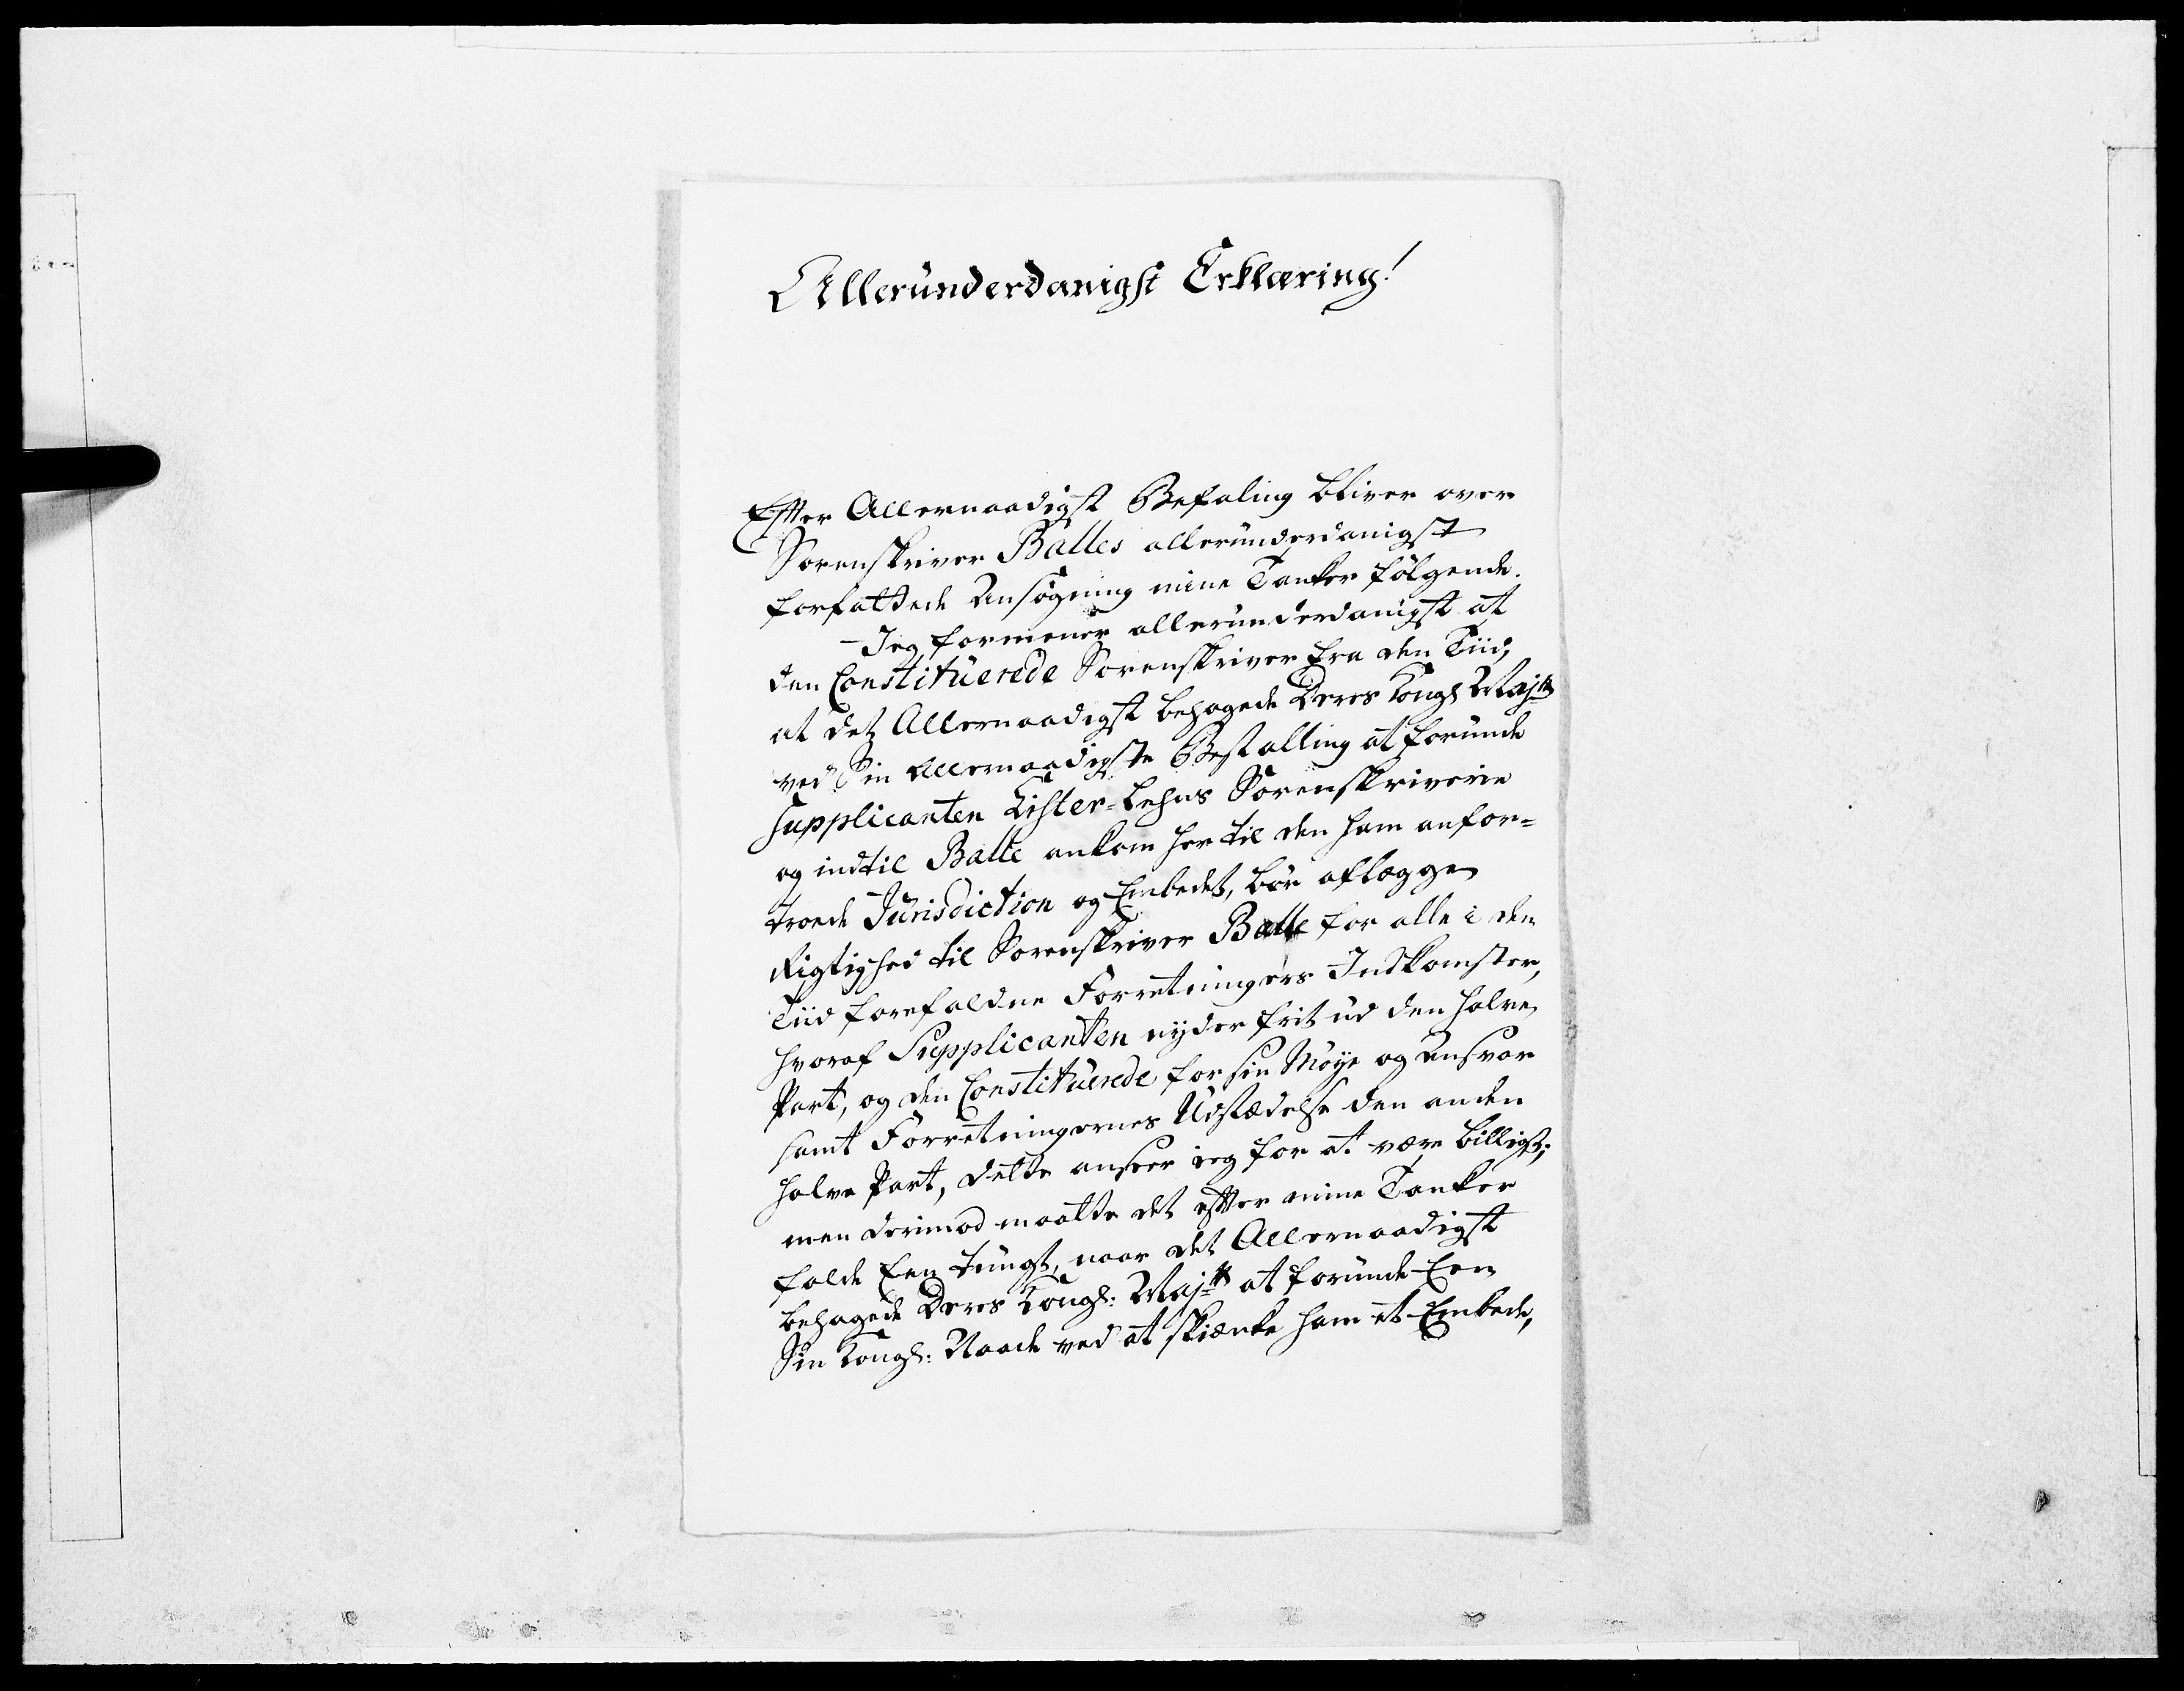 Allerunderdanigst Erklæring!
Effter Allernaadigst Befaling bliver over
Sorenskriver Balles allerunderdanigst
forfattede Ansøgning mine Tanker følgende.
Jeg formener allerunderdanigst at
den Constituerede Sorenskriver fra den Tiid,
at det Allernaadigst behagede Deres Kongl Majtt
ved Sin Allernaadigste Bestalling at forunde
Supplicanten Lister-Lehns Sorenskriverie
og indtil Balle ankom her til den ham anfor=
troede Jurisdiction og Embedet, bør aflægge
Rigtighed til Sorenskriver Balle for alle i den
Tiid forefaldne Forretningers Indkomster,
hvoraf Supplicanten nyder frit ud den halve
Part, og den Constituerede for sin Møye og Ansvar
samt Forretningernes Udstædelse den anden
halve Part, dette anseer ieg for at være billigst;
men derimod maatte det effter mine Tanker
falde Een tungt, naar det Allernaadigst
behagede Deres Kongl: Majtt at forunde Een
Sin Kongl: Naade ved at skiænke ham et Embede,